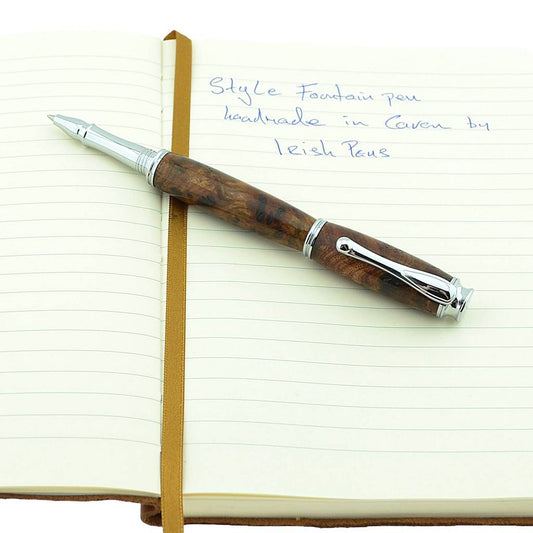 Style Fountain pen
handmade in Cavan by
Irish Pens